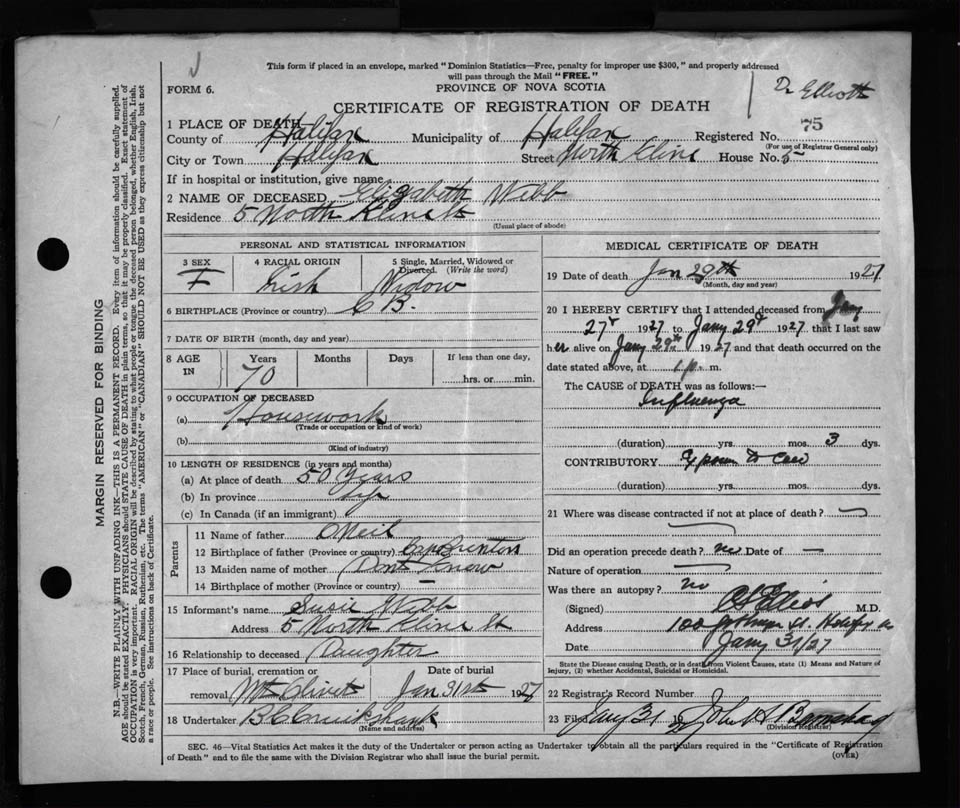 This form if placed in an envelope, marked "Dominion Statistics—Free, penalty for improper use $300," and properly addressed
will pass through the Mail "FREE."
Dr Elliott
FORM 6.
PROVINCE OF NOVA SCOTIA
CERTIFICATE OF REGISTRATION OF DEATH
1 PLACE OF DEATH
75
County of Halifax Municipality of Halifax Registered No.
(For use of Registrar General only)
City or Town Halifax Street North Kline House No. 5
If in hospital or institution, give name
2 NAME OF DECEASED Elizabeth Webb
Residence 5 North Kline St
(Usual place of abode)
PERSONAL AND STATISTICAL INFORMATION
3 SEX 4 RACIAL ORIGIN 5 Single, Married, Widowed or Divorced. (Write the word)
F Irish Widow
6 BIRTHPLACE (Province or country) C B.
7 DATE OF BIRTH (month, day and year)
8 AGE IN Years Months Days If less than one day,
70 hrs. or min.
9 OCCUPATION OF DECEASED
(a) Housework
(Trade or occupation or kind of work)
(b)
(Kind of industry)
10 LENGTH OF RESIDENCE (in years and months)
(a) At place of death 50 Years
(b) In province life
(c) In Canada (if an immigrant)
Parents
11 Name of father O Neil
12 Birthplace of father (Province or country) Cape Breton
13 Maiden name of mother Dont Know
14 Birthplace of mother (Province or country) —
15 Informant's name Susie Webb
Address 5 North Kline St
16 Relationship to deceased Daughter
17 Place of burial, cremation or Date of burial
removal Mt Olivet Jan 31st 1927
18 Undertaker B C Cruikshank
(Name and address)
MEDICAL CERTIFICATE OF DEATH
19 Date of death Jan 29th 1927
(Month, day and year)
20 I HEREBY CERTIFY that I attended deceased from Jany
27 1927 to Jany 29 1927 that I last saw
her alive on Jany 29th 1927 and that death occurred on
date stated above, at 1 p. m.
The CAUSE of DEATH was as follows:—
Influenza
(duration) yrs. mos. 3 dys.
CONTRIBUTORY
(duration) yrs. mos. dys.
21 Where was disease contracted if not at place of death?
Did an operation precede death? no Date of —
Nature of operation
Was there an autopsy? no
(Signed) Elliott M.D.
Address 100
Date Jany 31/27
State the Disease causing Death, or in death from Violent Causes, state (1) Means and Nature of
Injury, (2) whether Accidental, Suicidal or Homicidal.
22 Registrar's Record Number
23 Filed Jany 31 1927 John A
(Division Registrar)
SEC. 46—Vital Statistics Act makes it the duty of the Undertaker or person acting as Undertaker to obtain all the particulars required in the "Certificate of Registration
of Death" and to file the same with the Division Registrar who shall issue the burial permit.
(OVER)
MARGIN RESERVED FOR BINDING
N.B.—WRITE PLAINLY WITH UNFADING INK—THIS IS A PERMANENT RECORD. Every item of information should be carefully supplied.
AGE should be stated EXACTLY. PHYSICIANS should STATE CAUSE OF DEATH in plain terms, so that it may be properly classified. Exact statement of
OCCUPATION is very important. RACIAL ORIGIN will be described by stating to what people or tongue the deceased person belonged, whether English, Irish,
Scotch, French, German, Russian, Ruthenian, etc. The terms "AMERICAN" or "CANADIAN" SHOULD NOT BE USED as they express citizenship but not
a race or people. See instructions on back of Certificate.